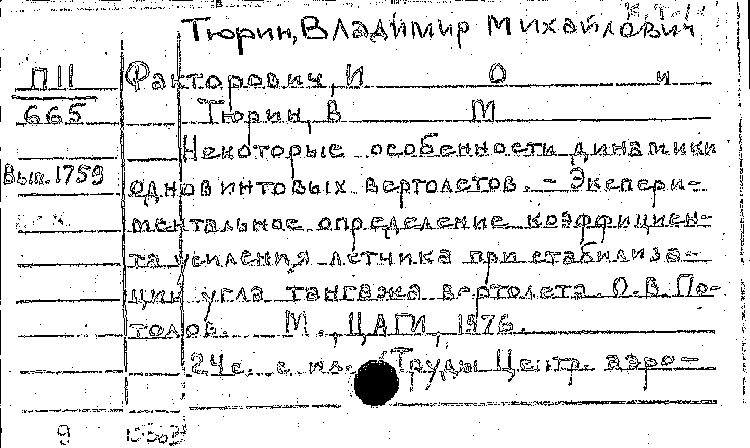 Тюрин, Владимир Михайлович
П 11
665
Факторович, И О и
Тюрин, В М
Некоторые особенности динамики
Вып. 1759
одновинтовых вертолетов. - Экспери-
ментальное определение коэффициен-
та усиления летчика при стабилиза-
ции угла тангажа вертолета. О. В. По-
тодов. М., ЦАГИ, 1976.
24 с. с ил. (Труды Центр. аэро-
9